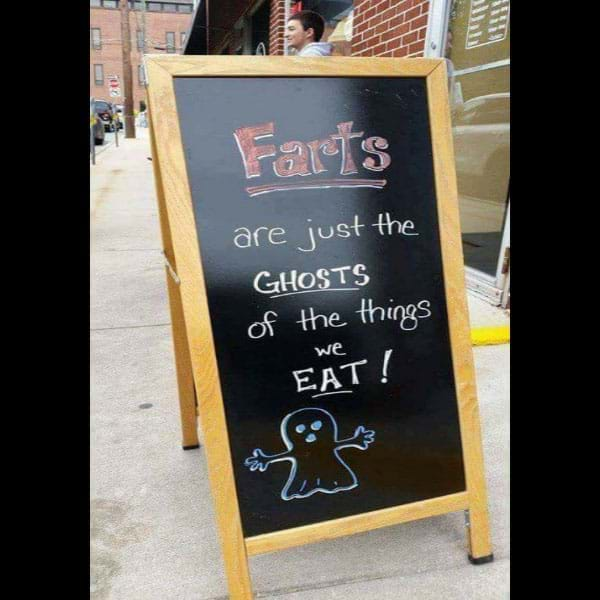 Farts
are just the
GHOSTS
of the things
we
EAT!